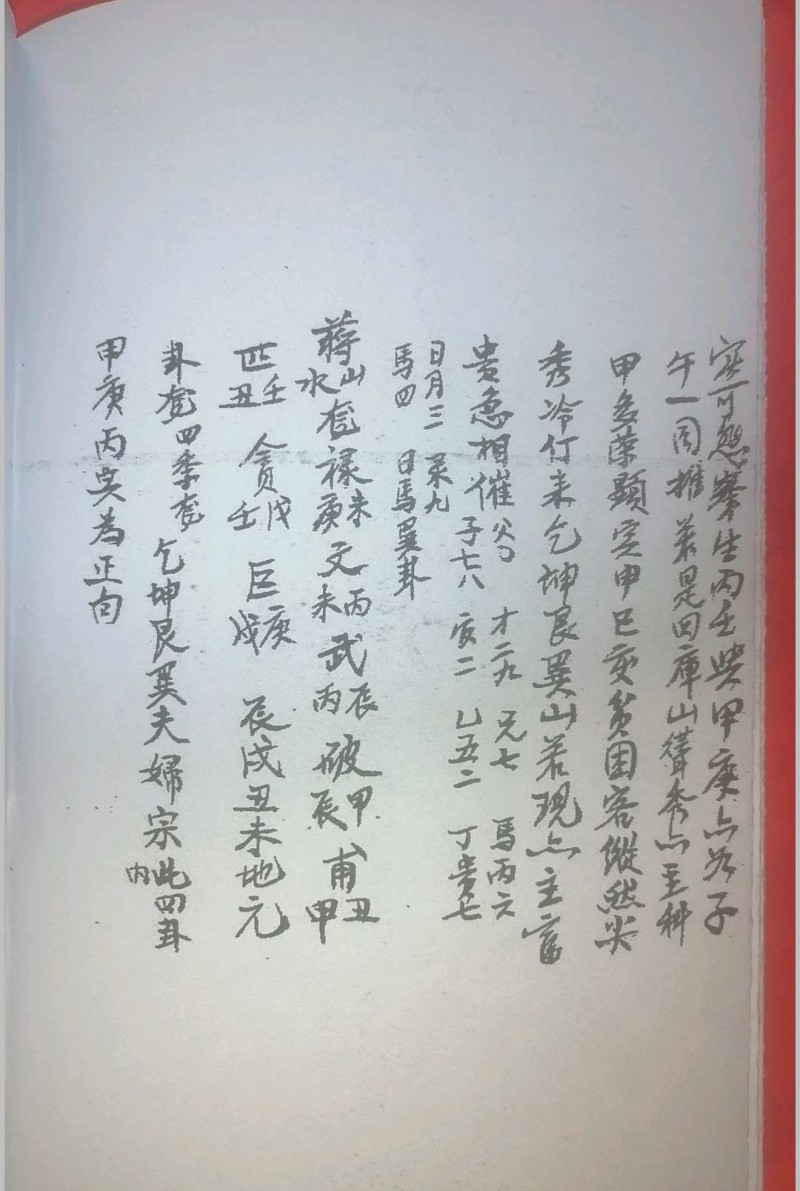 实可愁寡生丙壬與甲庚亦为子
午一同推若是四庫山聳秀亦主科
甲多荣顯寅甲巳亥贫困客縱然尖
秀冷仃来乞坤艮巽山若現亦主富
貴急相催父 才二九 兄七 馬丙六
子七八 亥二 乙五二 丁贵七
日月三 九
馬四 日馬巽卦
蒋山套禄未文丙武辰破甲甫丑
水 庚 未 丙 辰 甲
匹壬 贪戊 巨庚 辰戌丑未地元
丑 壬 戌
卦套四季套乞坤艮巽夫婦宗此四卦
内
甲庚丙 为正向